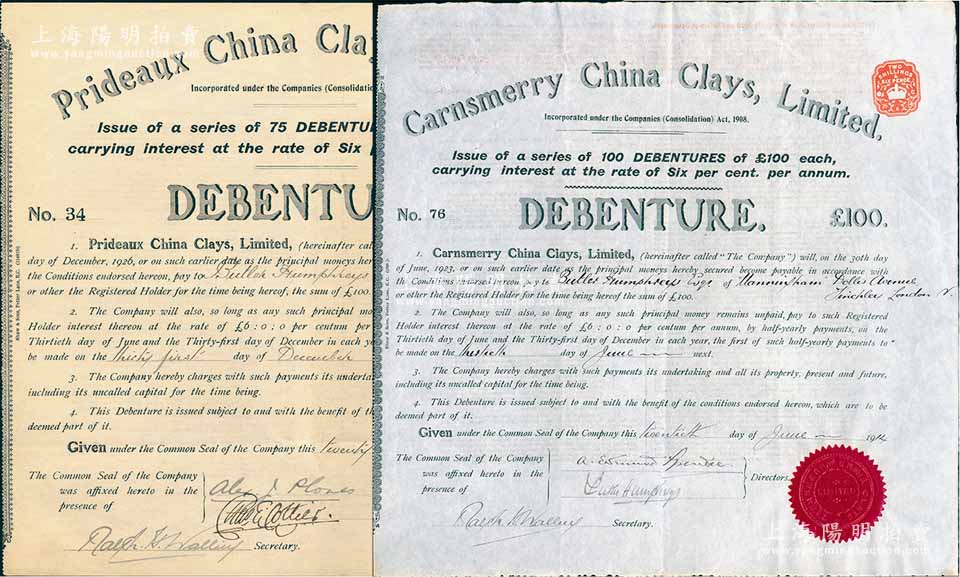 上海陽明拍賣
www.yangmingauction.com
Prideaux China Cla
Incorporated under the Companies (Consolidatio
Issue of a series of 75 DEBENTU
carrying interest at the rate of Six p
No. 34
DEBENTU
1. Prideaux China Clays, Limited, (hereinafter call
day of December, 1926, or on such earlier date as the principal moneys here
the Conditions endorsed hereon, pay to Butler Humphreys
or other the Registered Holder for the time being hereof, the sum of £100.
2. The Company will also, so long as any such principal mo
Holder interest thereon at the rate of £6 : 0 : 0 per centum per
Thirtieth day of June and the Thirty-first day of December in each year
be made on the thirty first day of December
3. The Company hereby charges with such payments its underta
including its uncalled capital for the time being.
4. This Debenture is issued subject to and with the benefit of th
deemed part of it.
Given under the Common Seal of the Company this twenty
The Common Seal of the Company
was affixed hereto in the
presence of
Secretary.
Carnsmerry China Clays, Limited,
TWO SHILLINGS & SIX PENCE
Incorporated under the Companies (Consolidation) Act, 1908.
Issue of a series of 100 DEBENTURES of £100 each,
carrying interest at the rate of Six per cent. per annum.
No. 76
DEBENTURE.
£100.
1. Carnsmerry China Clays, Limited, (hereinafter called "The Company") will, on the 30th
day of June, 1923, or on such earlier date as the principal moneys hereby secured become payable in accordance with
the Conditions endorsed hereon, pay to Butler Humphreys Esqr of Avenue
Finchley London N.
or other the Registered Holder for the time being hereof, the sum of £100.
2. The Company will also, so long as any such principal money remains unpaid, pay to such Registered
Holder interest thereon at the rate of £6 : 0 : 0 per centum per annum, by half-yearly payments, on the
Thirtieth day of June and the Thirty-first day of December in each year, the first of such half-yearly payments to
be made on the day of June next.
3. The Company hereby charges with such payments its undertaking and all its property, present and future,
including its uncalled capital for the time being.
4. This Debenture is issued subject to and with the benefit of the conditions endorsed hereon, which are to be
deemed part of it.
Given under the Common Seal of the Company this twentieth day of June 191
The Common Seal of the Company
was affixed hereto in the
presence of
Directors.
Secretary.
上海陽明拍賣
www.yangmingauction.com